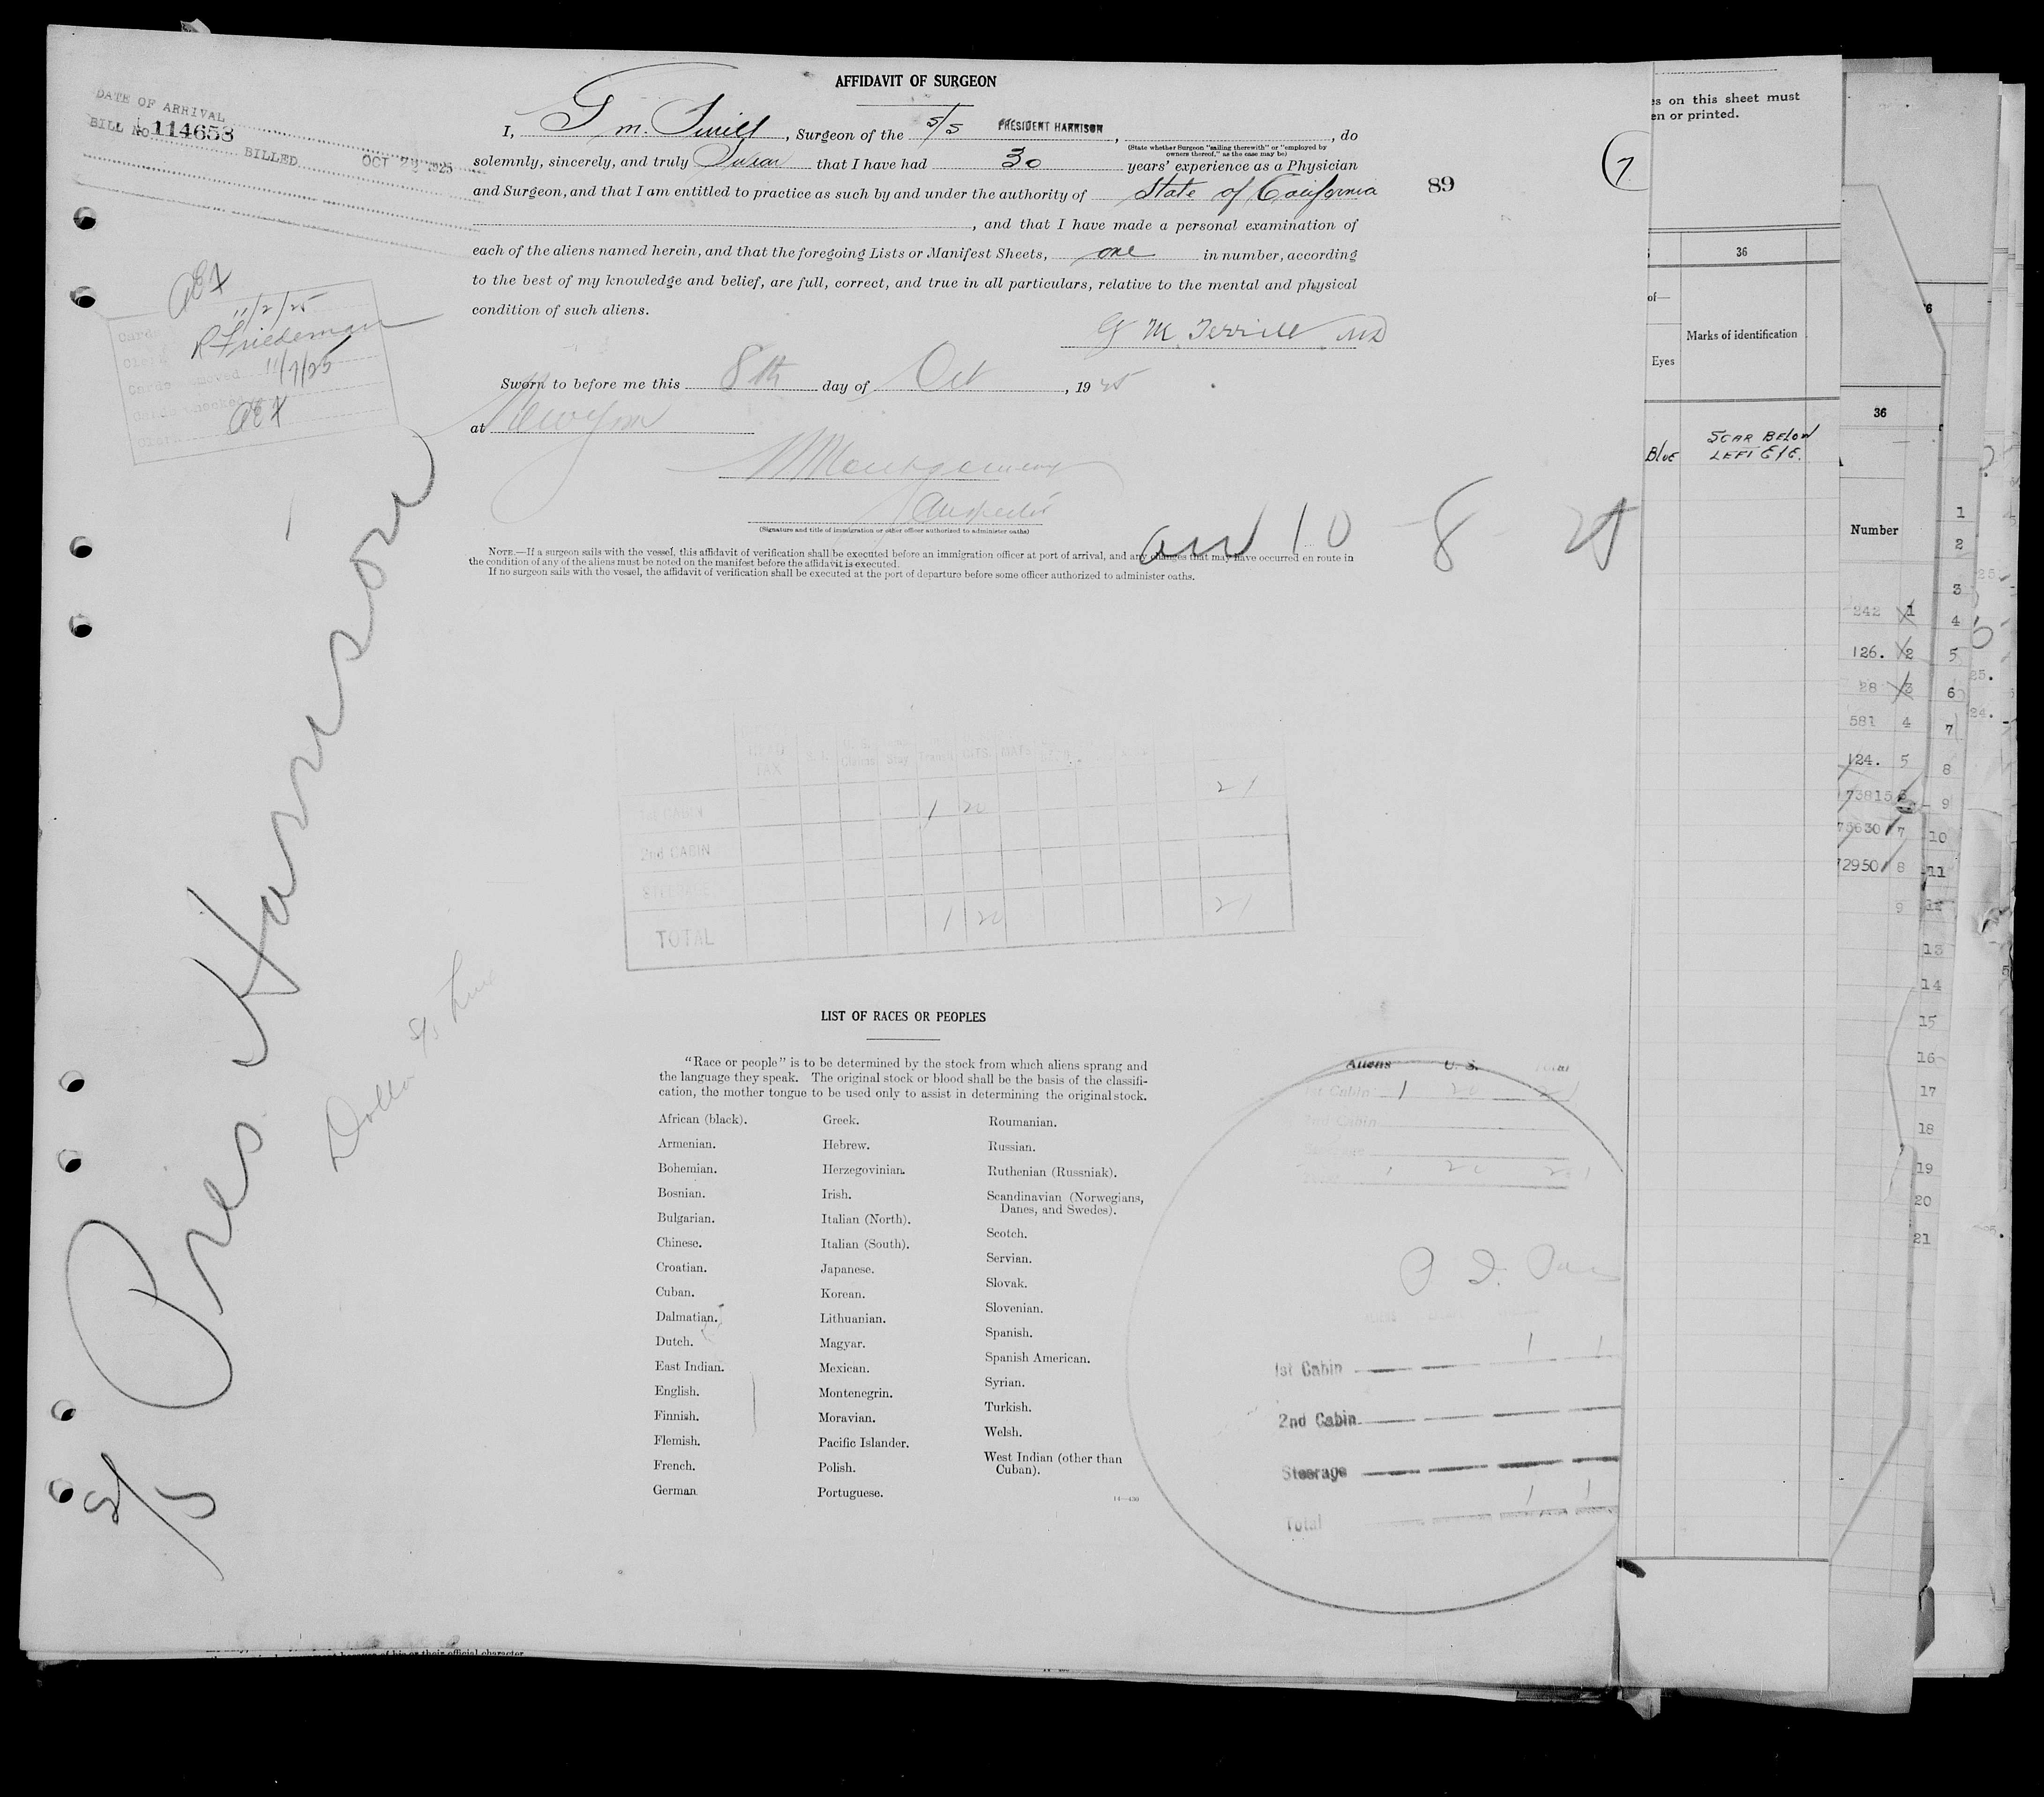 AFFIDAVIT OF SURGEON
DATE OF ARRIVAL
BILL NO. 114653
BILLED OCT 1925
I, , Surgeon of the S/S PRESIDENT HARRISON, , do
(State whether Surgeon "sailing therewith" or "employed by
owners thereof," as the case may be)
solemnly, sincerely, and truly that I have had 30 years' experience as a Physician
and Surgeon, and that I am entitled to practice as such by and under the authority of State of California
89
7
, and that I have made a personal examination of
each of the aliens named herein, and that the foregoing Lists or Manifest Sheets, one in number, according
to the best of my knowledge and belief, are full, correct, and true in all particulars, relative to the mental and physical
condition of such aliens.
G M. Terrill MD
Sworn to before me this 8th day of Oct, 1925
at New York
Montgomery
Inspector
(Signature and title of immigration or other officer authorized to administer oaths)
10 - 8 - 25
NOTE.—If a surgeon sails with the vessel, this affidavit of verification shall be executed before an immigration officer at port of arrival, and any changes that may have occurred en route in
the condition of any of the aliens must be noted on the manifest before the affidavit is executed.
If no surgeon sails with the vessel, the affidavit of verification shall be executed at the port of departure before some officer authorized to administer oaths.
11/2/25
R Friedeman
11/7/25
S/S Pres. Harrison
Dollar S/S Line
TAX Claims Stay Transit CITS.
1st CABIN 1 20 21
2nd CABIN
TOTAL 1 20 21
LIST OF RACES OR PEOPLES
"Race or people" is to be determined by the stock from which aliens sprang and
the language they speak. The original stock or blood shall be the basis of the classifi-
cation, the mother tongue to be used only to assist in determining the original stock.
African (black).
Armenian.
Bohemian.
Bosnian.
Bulgarian.
Chinese.
Croatian.
Cuban.
Dalmatian.
Dutch.
East Indian.
English.
Finnish.
Flemish.
French.
German.
Greek.
Hebrew.
Herzegovinian.
Irish.
Italian (North).
Italian (South).
Japanese.
Korean.
Lithuanian.
Magyar.
Mexican.
Montenegrin.
Moravian.
Pacific Islander.
Polish.
Portuguese.
Roumanian.
Russian.
Ruthenian (Russniak).
Scandinavian (Norwegians,
Danes, and Swedes).
Scotch.
Servian.
Slovak.
Slovenian.
Spanish.
Spanish American.
Syrian.
Turkish.
Welsh.
West Indian (other than
Cuban).
14—430
Aliens U. S. Total
1st Cabin 1 20 21
2nd Cabin
Steerage
1 20 21
1st Cabin 1 1
2nd Cabin
Steerage
Total 1 1
on this sheet must
en or printed.
36
of—
Marks of identification
Eyes
Blue SCAR BELOW
LEFT EYE.
36
Number
242 1
126. 2
28 3
581 4
124. 5
73815 6
75630 7
72950 8
9
1
2
3
4
5
6
7
8
9
10
11
12
13
14
15
16
17
18
19
20
21
of his or their official character